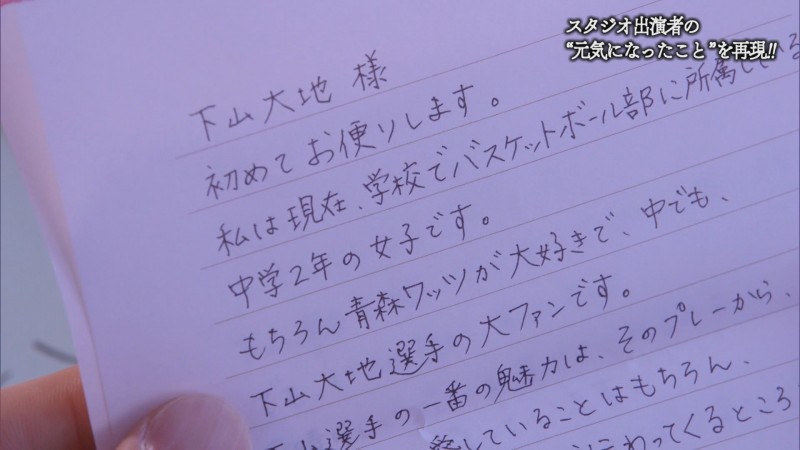 スタジオ出演者の
“元気になったこと”を再現!!
下山大地 様
初めてお便りします。
私は現在、学校でバスケットボール部に所属している
中学2年の女子です。
もちろん青森ワッツが大好きで、中でも、
下山大地選手の大ファンです。
下山選手の一番の魅力は、そのプレーから、
していることはもちろん、
わってくるところ